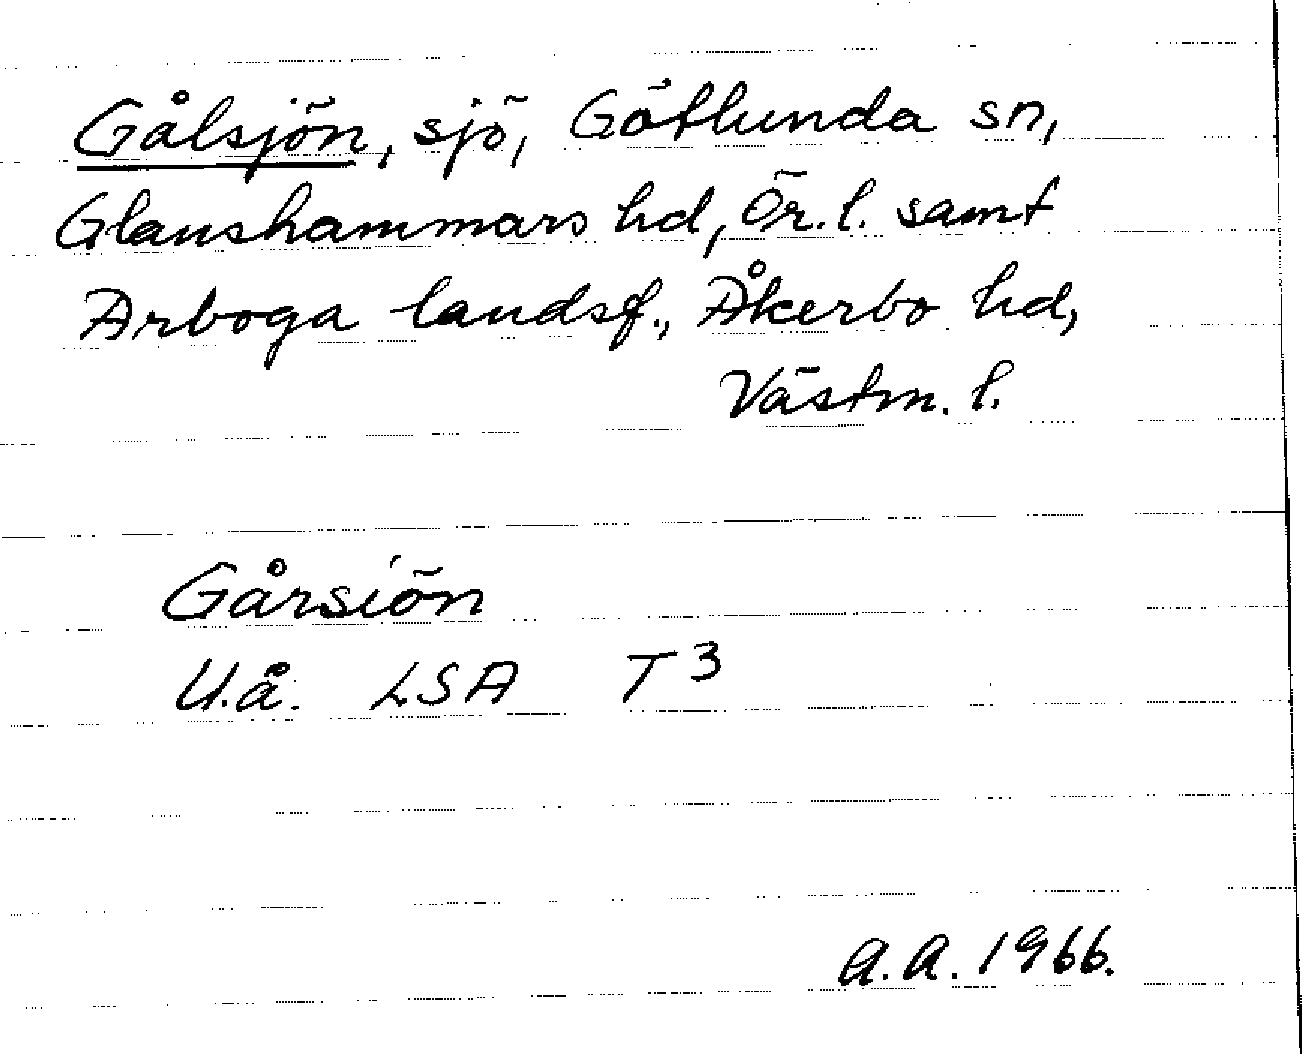 Gålsjön, sjö, Götlunda sn,
Glanshammars hd, Ör. l. samt
Arboga landsf., Åkerbo hd,
Västm. l.
Gårsiön
U.å. LSA T 3
A.A. 1966.